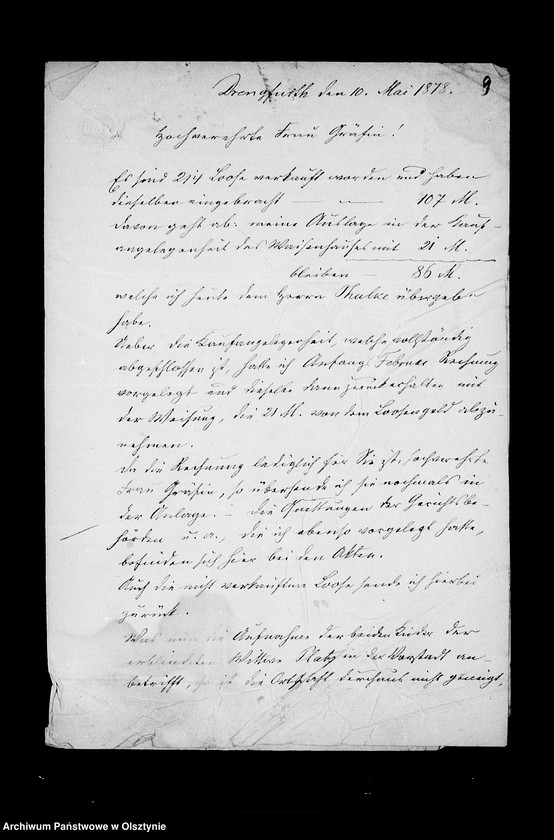 Drengfurth den 10. Mai 1878.
9
Hochverehrte Frau Gräfin!
Es sind 214 Loose verkauft worden und haben
dieselben eingebracht — „ — 107 M.
davon geht ab: meine Auslage in der Kauf-
angelegenheit des Waisenhauses mit 21 M.
bleiben — 86 M.
welche ich heute dem Herrn Thulke übergeben
habe.
Ueber die Kaufangelegenheit, welche vollständig
abgeschlossen ist, hatte ich Anfangs Februar Rechnung
vorgelegt und dieselbe dann zurückerhalten mit
der Weisung, die 21 M. von dem Loosengeld abzu-
nehmen.
Da die Rechnung lediglich für Sie ist, hochverehrte
Frau Gräfin, so übersende ich sie nochmals in
der Anlage. – Die Quittungen der Gerichtsbe-
hörden u. a., die ich ebenso vorgelegt hatte,
befinden sich hier bei den Akten.
Auch die nicht verkauften Loose sende ich hierbei
zurück.
Was nun die Aufnahme der beiden Kinder der
erblindeten Wittwe Platz in der Vorstadt an
betrifft, so ist die Ortschaft durchaus nicht geneigt,
Archiwum Państwowe w Olsztynie